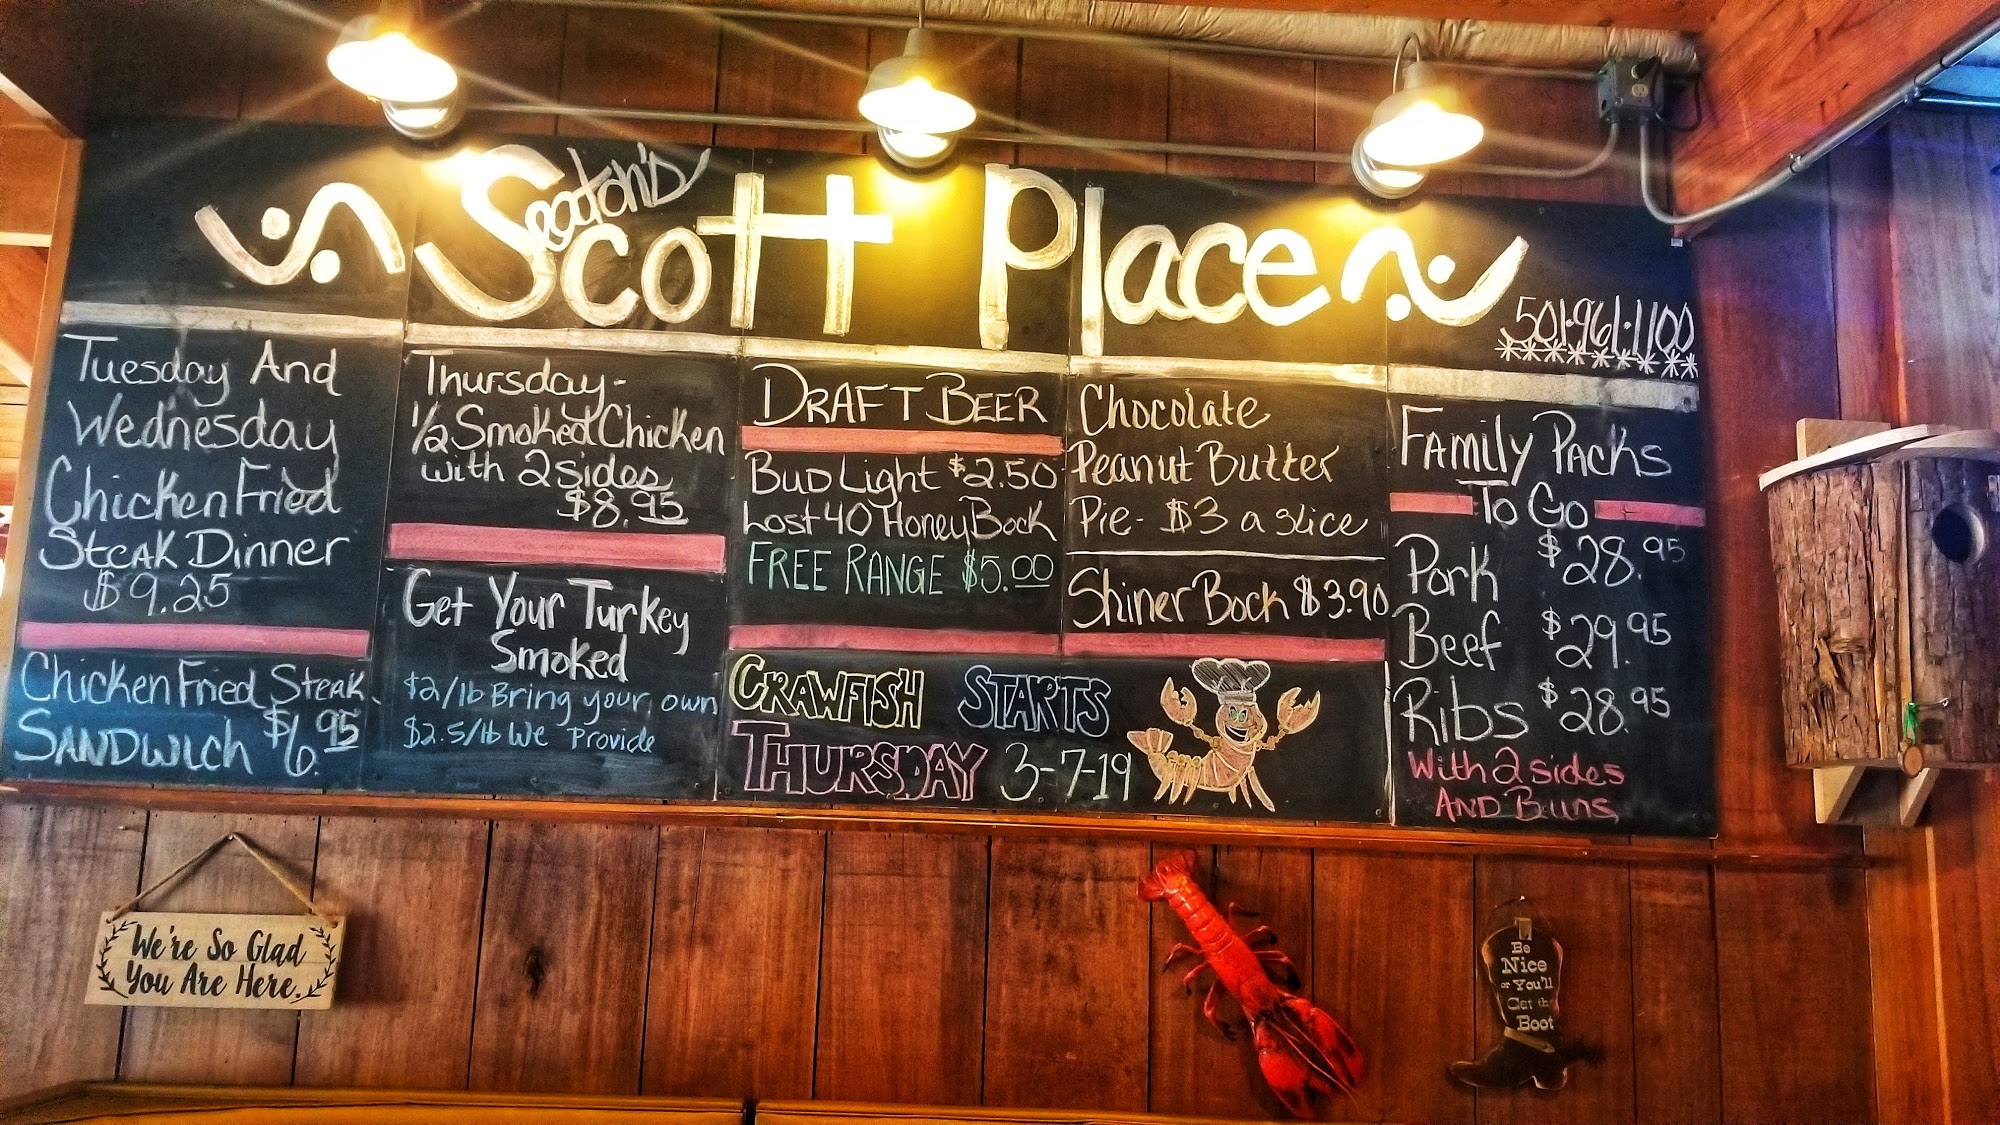 Seaton's
Scott Place
501-961-1100
*********
Tuesday And
Wednesday
Chicken Fried
Steak Dinner
$9.25
Chicken Fried Steak
Sandwich $6.95
Thursday-
1/2 Smoked Chicken
with 2 sides
$8.95
Get Your Turkey
Smoked
$2/lb Bring your own
$2.5/lb We Provide
DRAFT BEER
Bud Light $2.50
Lost 40 Honey Bock
FREE RANGE $5.00
Chocolate
Peanut Butter
Pie- $3 a slice
Shiner Bock $3.90
CRAWFISH STARTS
THURSDAY 3-7-19
Family Packs
To Go
Pork $28.95
Beef $29.95
Ribs $28.95
With 2 sides
AND Buns
We're So Glad
You Are Here.
Be
Nice
or You'll
Get the
Boot